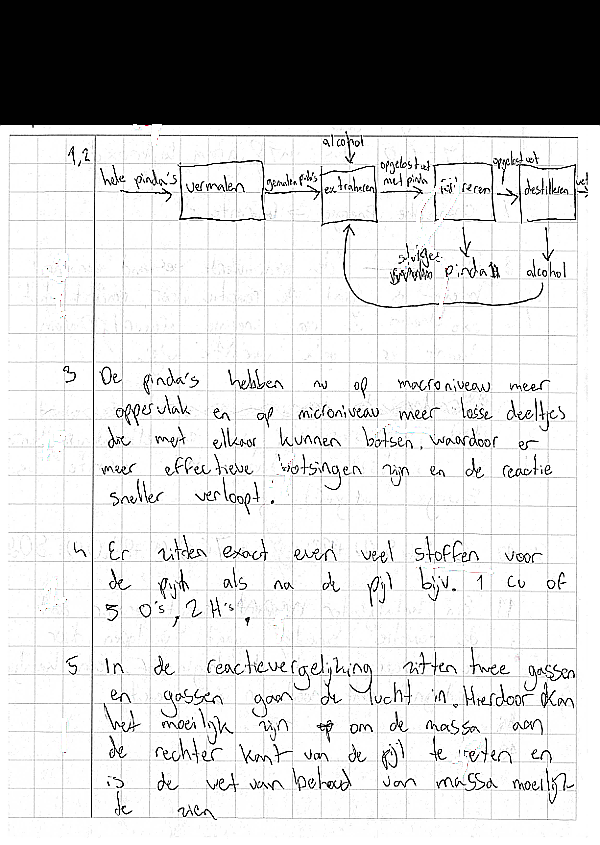 1,2
alcohol
hele pinda's
vermalen
gemalen pinda's
extraheren
opgelost vet
met pinda
opgelost vet
destilleren
vet
stukjes
pinda
alcohol
3 De pinda's hebben nu op macroniveau meer
oppervlak en op microniveau meer losse deeltjes
die met elkaar kunnen botsen, waardoor er
meer effectieve botsingen zijn en de reactie
sneller verloopt.
4 Er zitden exact even veel stoffen voor
de pijn als na de pijl bijv. 1 Cu of
5 O's, 2 H's.
5 In de reactievergelijking zitten twee gassen
en gassen gaan de lucht in. Hierdoor kan
het moeilijk zijn om de massa aan
de rechter kant van de pijl te meten en
is de wet van behoud van massa moeilijk
te zien